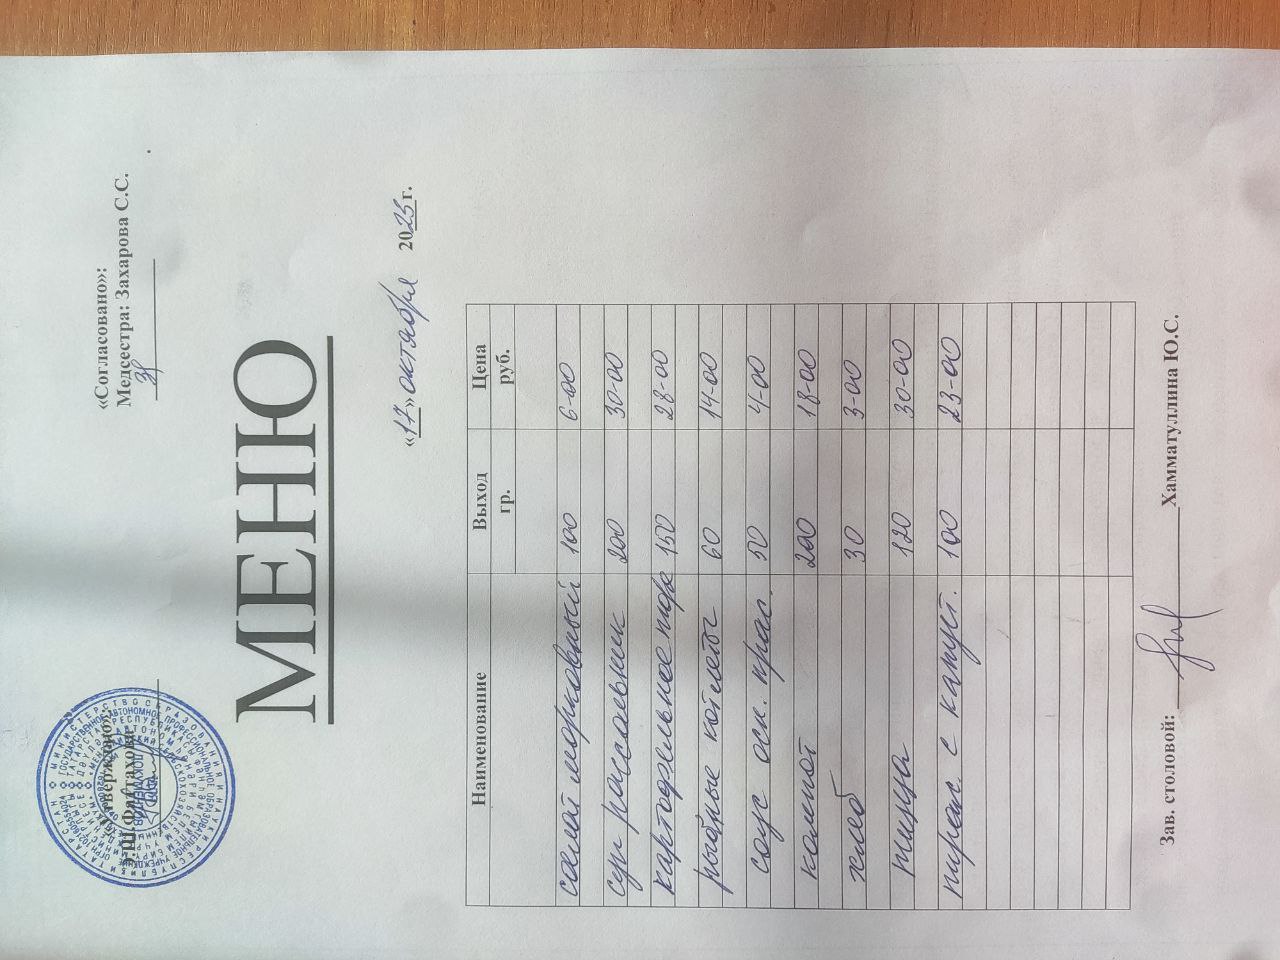 «Утверждано»:
Э.Ш.Фаттахова
«Согласовано»:
Медсестра: Захарова С.С.
МЕНЮ
«17» октября 2025г.
Наименование Выход гр. Цена руб.
салат морковный 100 6-00
суп рассольник 200 30-00
картофельное пюре 150 28-00
рыбные котлеты 60 14-00
соус осн. крас. 50 4-00
компот 200 18-00
хлеб 30 3-00
пицца 120 30-00
пирож. с капуст. 100 23-00
Зав. столовой: Хамматуллина Ю.С.